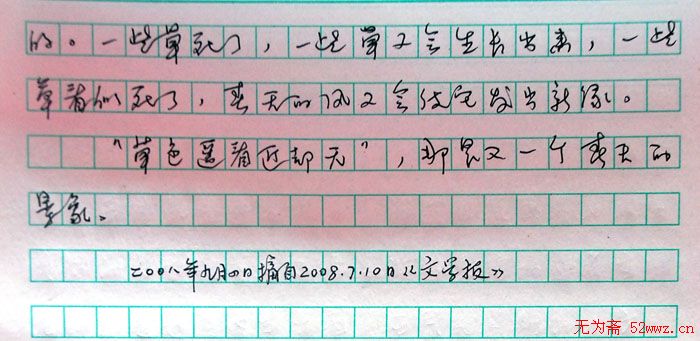 的。一些草死了，一些草又会生长出来，一些
草看似死了，春天的风又会使它发出新绿。
“草色遥看近却无”，那是又一个春天的
景象。
二〇〇八年九月四日摘自2008.7.10日《文学报》
无为斋 52wwz.cn